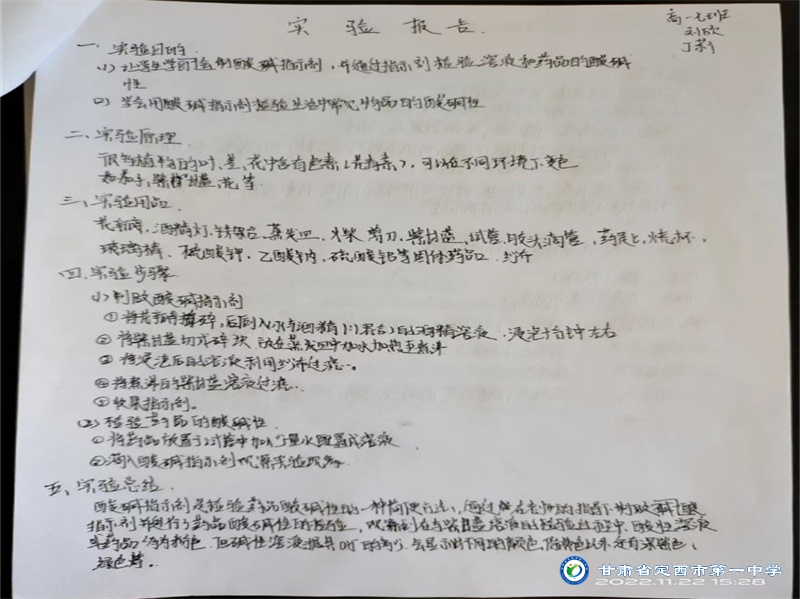 实验报告
高一七班
刘欣
丁莉
一、实验目的
(1) 让学生学习自制酸碱指示剂，并通过指示剂检验溶液和药品的酸碱
性
(2) 学会用酸碱指示剂检验生活中常见物品的酸碱性
二、实验原理
很多植物的叶、茎、花中含有色素(花青素)，可以在不同环境下变色
如茄子，紫甘蓝，花等
三、实验用品
花，酒精灯，铁架台，蒸发皿，火柴，剪刀，紫甘蓝，试管，胶头滴管，药匙，烧杯，
玻璃棒，硫酸钾，乙酸钠，硫酸铝等固体药品，纱布
四、实验步骤
(1) 制取酸碱指示剂
①将花瓣捣碎，后倒入水与酒精1:1混合的酒精溶液，浸泡十分钟左右
②将紫甘蓝切成碎块放在蒸发皿中加水加热至煮沸
③将浸泡后的溶液利用纱布过滤
④将煮沸的紫甘蓝溶液过滤
⑤收集指示剂。
(2) 检验药品的酸碱性
①将药品放置于试管中加入少量水配置成溶液
②滴入酸碱指示剂观察实验现象
五、实验总结
酸碱指示剂是检验药品酸碱性的一种简便方法，通过在老师的指导下制取酸碱
指示剂并进行了药品酸碱性的检验，观察到在紫甘蓝溶液的检验过程中，酸性溶液
药品均为粉色，但碱性溶液根据OH⁻的多少会显示时不同的颜色，除绿色以外还有深绿色，
绿色等。
甘肃省定西市第一中学
2022.11.22 15:28